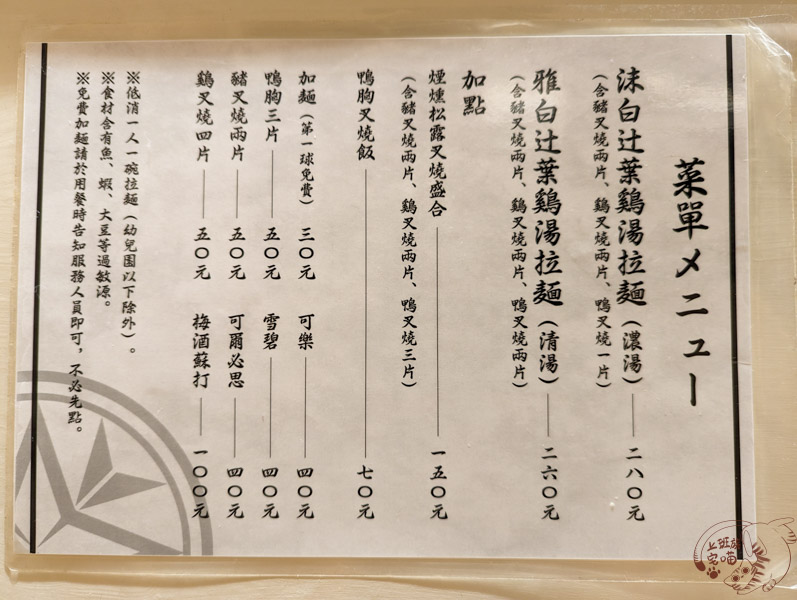 菜單メニュー
沫白辻葉鷄湯拉麵（濃湯）——二八〇元
（含豬叉燒兩片、鷄叉燒兩片、鴨叉燒一片）
雅白辻葉鷄湯拉麵（清湯）——二六〇元
（含豬叉燒兩片、鷄叉燒兩片、鴨叉燒兩片）
加點
煙燻松露叉燒盛合——一五〇元
（含豬叉燒兩片、鷄叉燒兩片、鴨叉燒三片）
鴨胸叉燒飯——七〇元
加麵（第一球免費）三〇元 可樂——四〇元
鴨胸三片——五〇元 雪碧——四〇元
豬叉燒兩片——五〇元 可爾必思——四〇元
鷄叉燒四片——五〇元 梅酒蘇打——一〇〇元
※低消一人一碗拉麵（幼兒園以下除外）。
※食材含有魚、蝦、大豆等過敏源。
※免費加麵請於用餐時告知服務人員即可，不必先點。